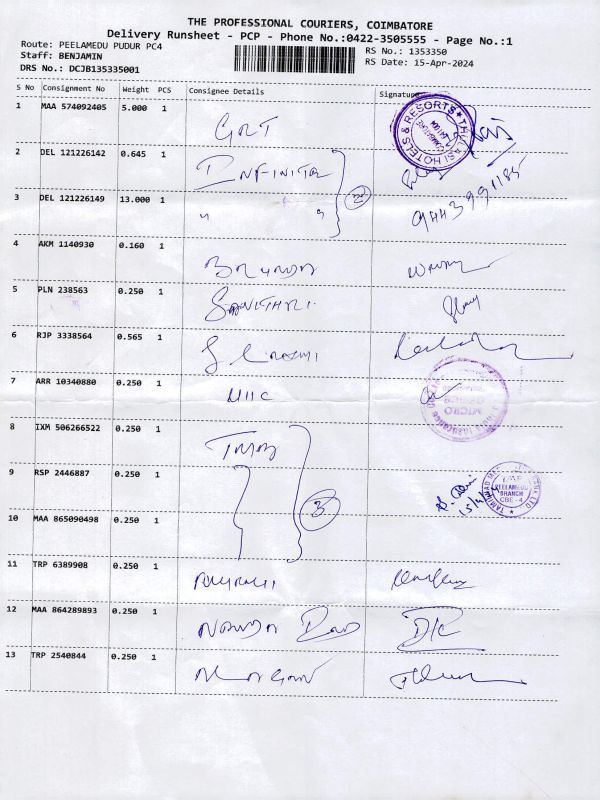 THE PROFESSIONAL COURIERS, COIMBATORE
Delivery Runsheet - PCP - Phone No.:0422-3505555 - Page No.:1
Route: PEELAMEDU PUDUR PC4
RS No.: 1353350
Staff: BENJAMIN
RS Date: 15-Apr-2024
DRS No.: DCJB135335001
S No Consignment No Weight PCS Consignee Details Signature
1 MAA 574092405 5.000 1 GRT
2 DEL 121226142 0.645 1 INFINITE
3 DEL 121226149 13.000 1 " " 2 9443991185
4 AKM 1140930 0.160 1
5 PLN 238563 0.250 1
6 RJP 3338564 0.565 1
7 ARR 10340880 0.250 1 UIIC
MICRO OFFICE
8 IXM 506266522 0.250 1 TMB
9 RSP 2446887 0.250 1
PEELAMEDU
BRANCH
CBE - 4
10 MAA 865090498 0.250 1 3
11 TRP 6389908 0.250 1
12 MAA 864289893 0.250 1
13 TRP 2540844 0.250 1